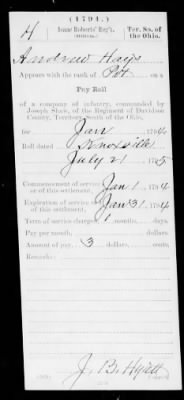 (1794.)
H Isaac Roberts' Reg't. Ter. So. of
the Ohio.
Andrew Hays
Appears with the rank of Pvt on a
Pay Roll
of a company of infantry, commanded by
Joseph Shaw, of the Regiment of Davidson
County, Territory South of the Ohio,
for Jan , 1794
Roll dated Knoxville
July 21 , 1795
Commencement of service
or of this settlement, Jan 1 , 1794
Expiration of service
of this settlement, Jan 31 , 1794
Term of service charged, 1 months, days.
Pay per month, dollars, cents.
Amount of pay, 3 dollars, cents.
Remarks:
J. B. Hyatt
Copyist.